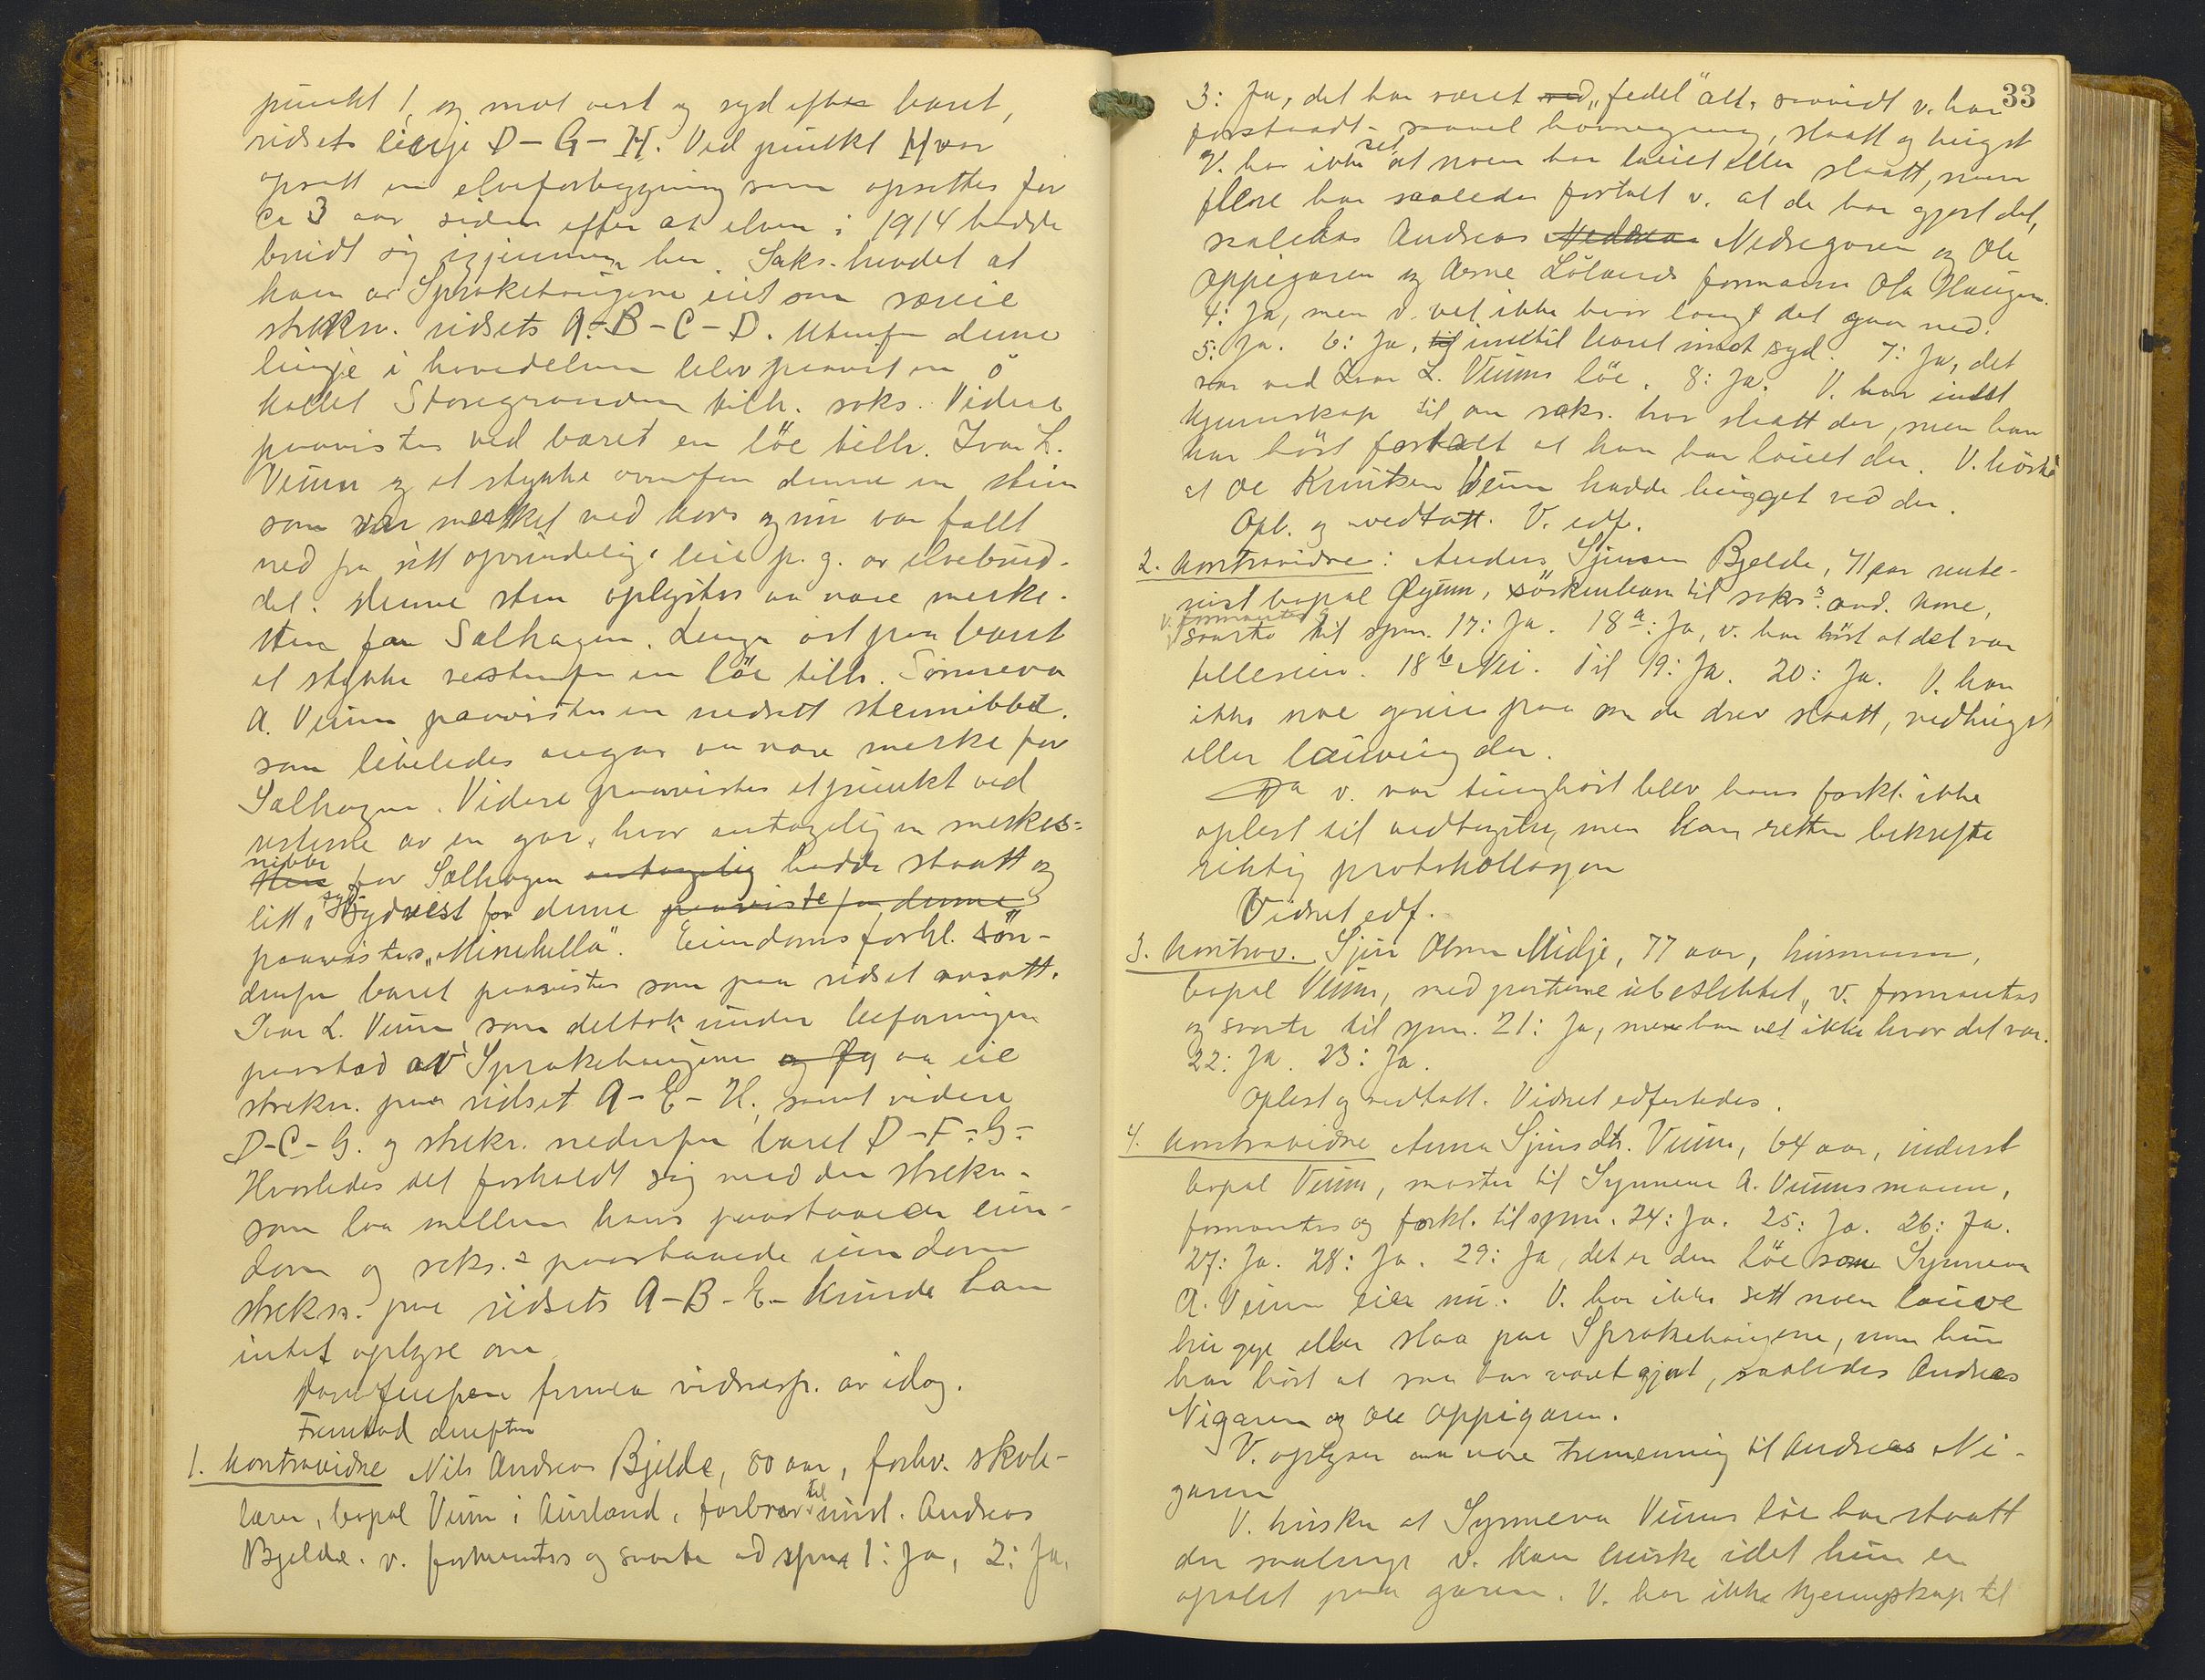 punkt 1, og mot vest og syd efter baret,
ridsets linje D-G-H. Ved punkt H var
opsatt en elveforbygning som opsattes for
ca 3 aar siden efter at elven i 1914 hadde
brudt sig igjennem her. Saks. hevdet at
han av Sprakehaugene eiet som særeie
strekn. ridsets A-B-C-D. Utenfor denne
linje i hovedelven blev paavist en ö
kallet Storegranden tilh. saks. Videre
paavistes ved baret en löe tilh. Ivar L.
Veum og et stykke ovenfor denne en sten
som var merket med kors og nu var fallt
ned fra sitt oprindelige leie p.g. av elvebrud-
det. Denne sten oplystes aa være merke-
sten for Sælhagen. Lenger öst paa baret
et stykke vestenfor en löe tilh. Sönneva
A. Veum paavistes en nedsatt stennibbe
som likeledes angas aa være merke for
Sælhagen. Videre paavistes et punkt ved
resterne av en gar, hvor antagelig en merkes-
nibbe
sten for Sælhagen antagelig hadde staatt og
litt i syd sydvest for denne paaviste for denne
paavistes "Minehella". Eiendomsforhl. sön-
denfor baret paavistes som paa ridset avsatt.
Ivar L. Veum som deltok under befaringen
paastod av Sprakehaugene og Øy aa eie
strekn. paa ridset A-E-H, samt videre
D-C-G. og strekn. nedenfor baret D-F-G-
Hvorledes det forholdt sig med den strekn.
som laa mellem hans paastaaede eien-
dom og saks.s paastaaede eiendom
strekn. paa ridsets A-B-E- kunde han
intet oplyse om.
fornea vidnesp. av idag.
Fremstod derefter
1. kontravidne Nils Andreas Bjelde, 80 aar, forhv. skole-
lærer, bopæl Veum i Aurland, farbror til mind. Andreas
Bjelde. v. formantes og svarte ad spm 1: Ja, 2: Ja,
33
3: Ja, det har været ved "fedel" alt, saavidt v. har
forstaadt - saavel havnegang, slaatt og hugst
V. har ikke set at noen har lauvet eller slaatt, men
flere har saaledes fortalt v. at de har gjort det,
saaledes Andreas Neddrea Nedregaren og Ole
Oppigaren og Arne Lölands formann Ola Haugen.
4: Ja, men v. vet ikke hvor langt det gaar ned.
5: Ja. 6: Ja, til inntil baret imot syd. 7: Ja, det
var ved Ivar L. Veums löe. 8: Ja. V. har intet
kjennskap til om saks. har slaatt der, men han
har hört fortalt at han har lauvet der. V. hörte
at Ole Knutsen Veum hadde hugget ved der.
Opl. og vedtatt. V. edf.
2. kontravidne: Anders Sjursen Bjelde, 71 aar rente-
nist bopæl Øyum, söskenbarn til saks.s avd. kone,
v. formantes og
svarte til spm. 17: Ja. 18a: Ja, v. har hört at det var
felleseie. 18b Nei. Til 19: Ja. 20: Ja. V. har
ikke noe greie paa om de drev slaatt, vedhugst
eller lauving der.
Da v. var tunghört blev hans forkl. ikke
oplest til vedtagelse, men kan retten bekrefte
riktig protokollasjon
Vidnet edf.
3. kontrav. Sjur Olsen Midje, 77 aar, husmann,
bopæl Veum, med partene ubeslektet, v. formantes
og svarte til spm. 21: Ja, men han vet ikke hvor det var.
22: Ja. 23: Ja.
Oplest og vedtatt. Vidnet edfestedes.
4. kontravidne Anna Sjursdtr. Veum, 64 aar, inderst
bopæl Veum, moster til Synneva A. Veums mann,
formantes og forkl. til spm. 24: Ja. 25: Ja. 26: Ja.
27: Ja. 28: Ja. 29: Ja, det er den löe som Synneva
A. Veum eier nu. V. har ikke sett noen lauve
hugge eller slaa paa Sprakehaugene, men hun
har hört at saa har været gjort, saaledes Andreas
Nigaren og Ole Oppigaren.
V. oplyser aa være tremenning til Andreas Ni-
garen
V. husker at Synneva Veums löe har staatt
der saalenge v. kan huske idet hun er
opalet paa garen. V. har ikke kjennskap til